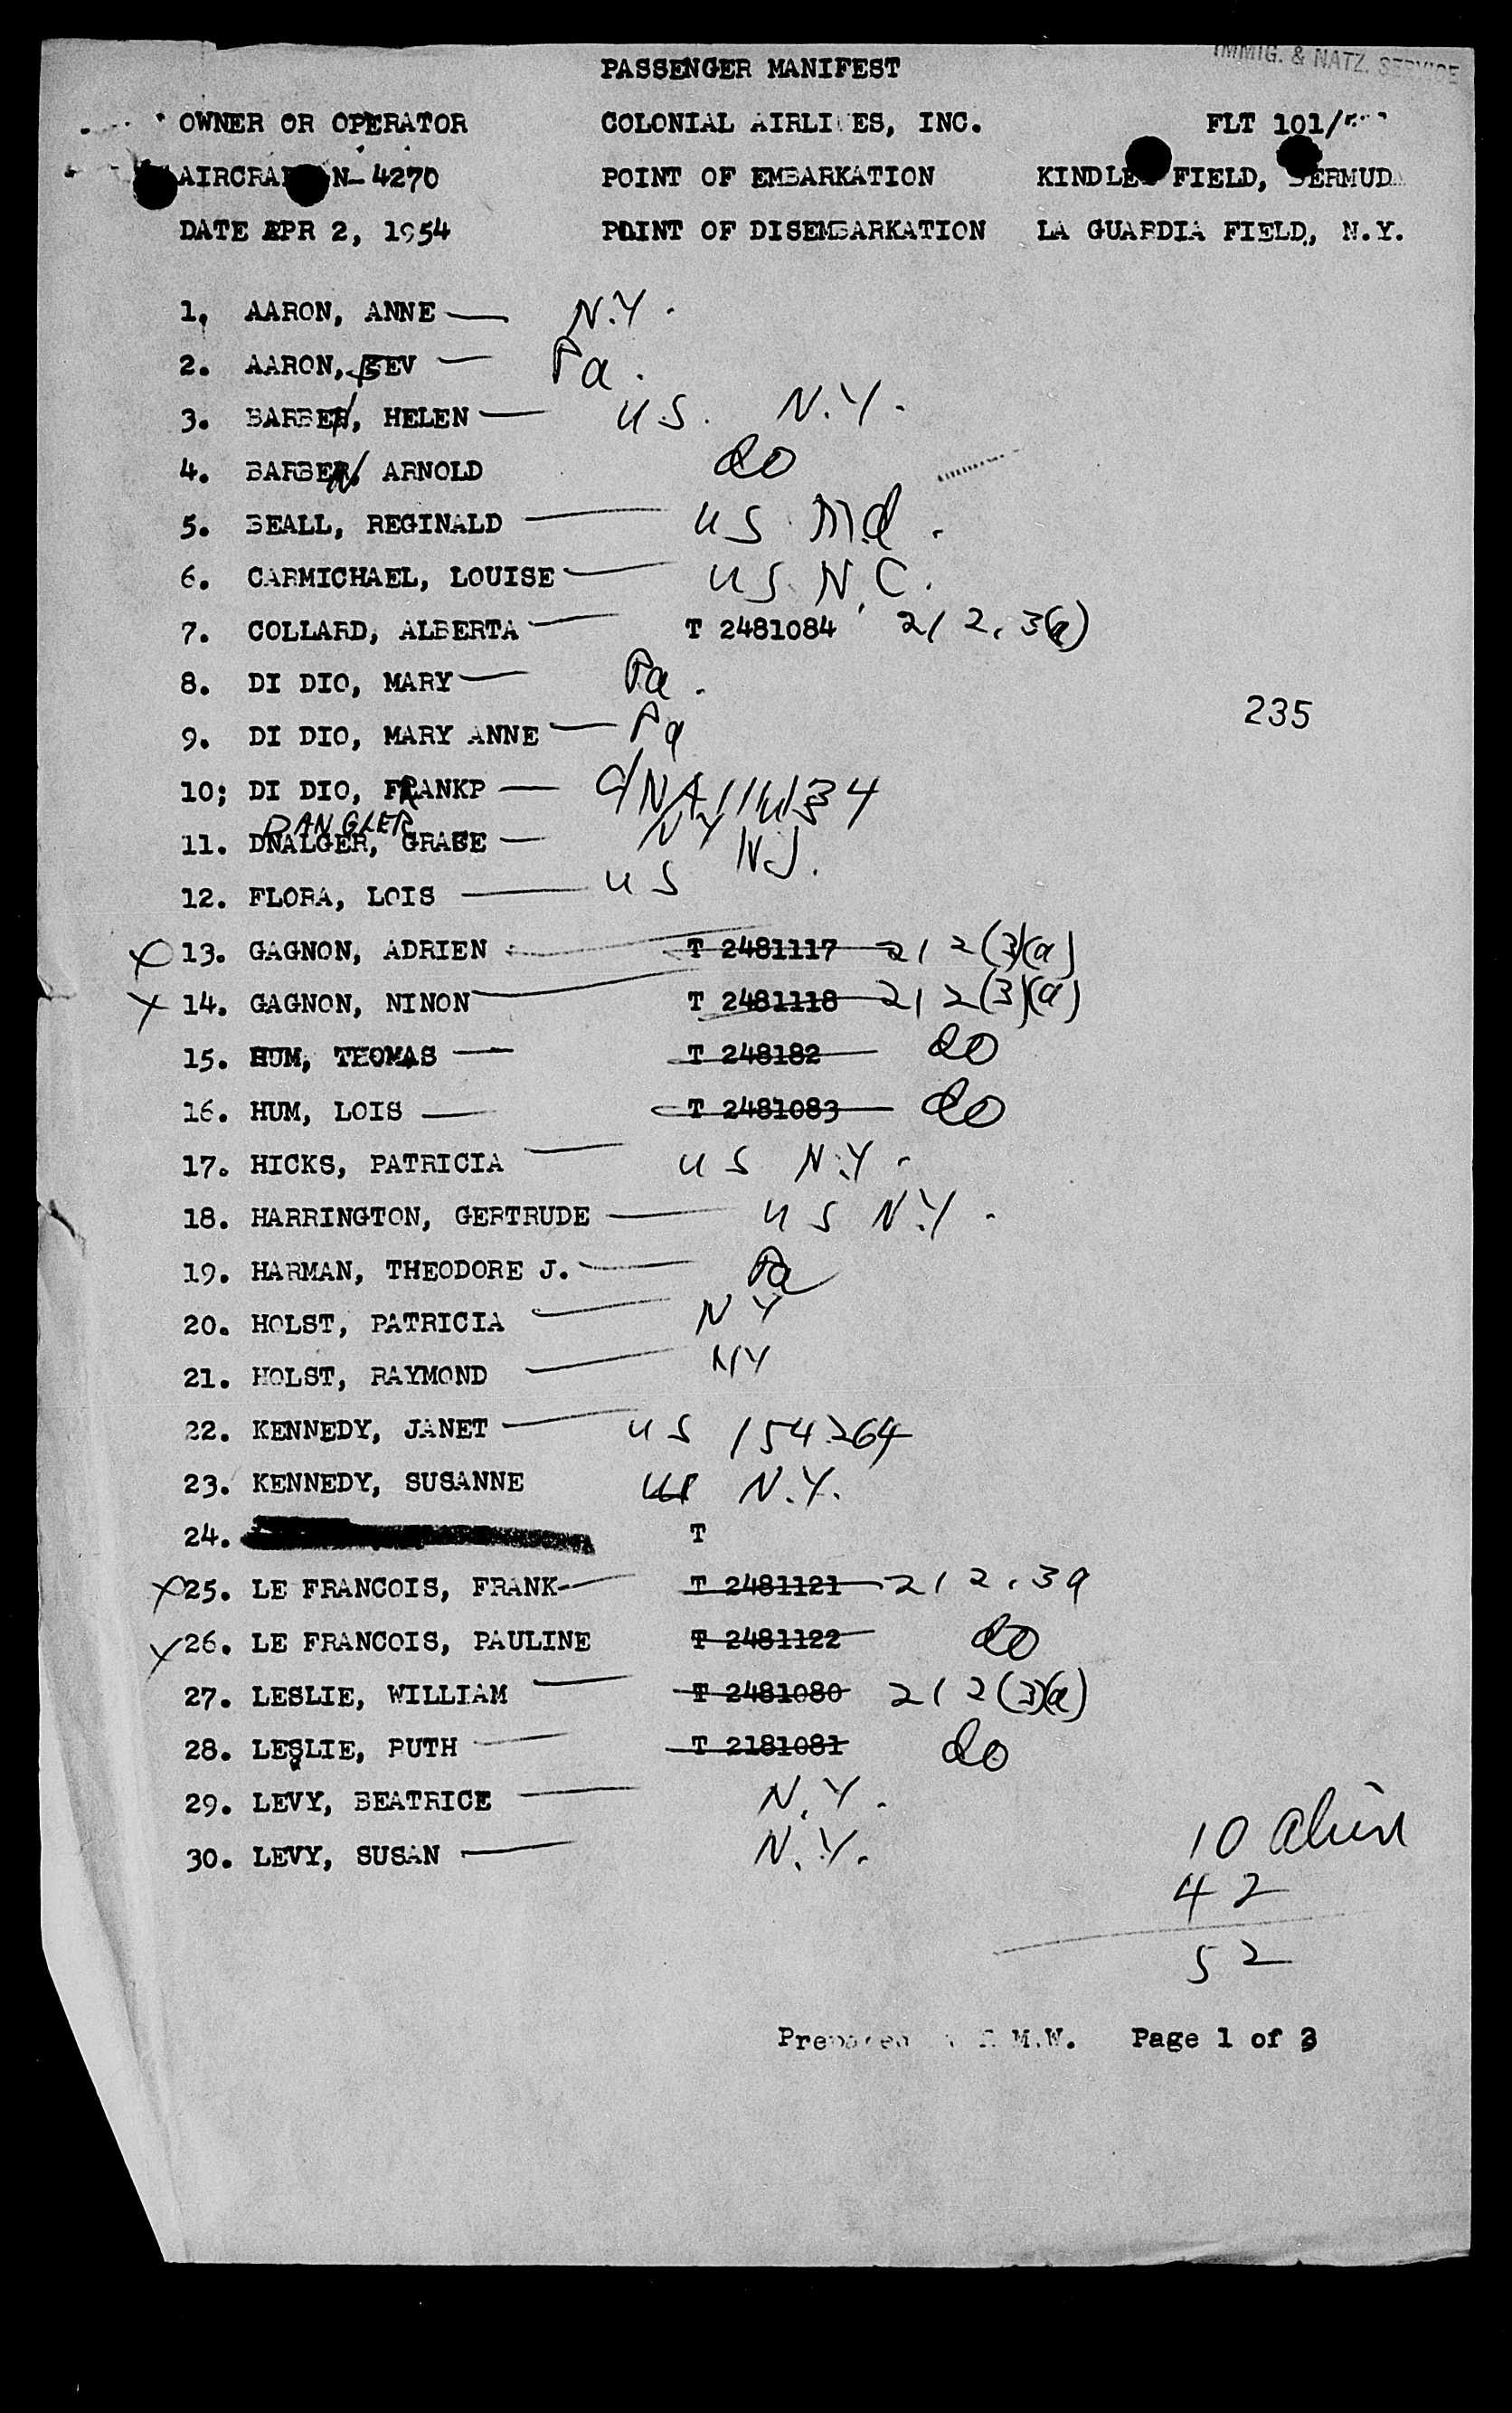 IMMIG. & NATZ. SERVICE
PASSENGER MANIFEST
OWNER OR OPERATOR COLONIAL AIRLINES, INC. FLT 101/
AIRCRAFT N-4270 POINT OF EMBARKATION KINDLEY FIELD, BERMUDA
DATE APR 2, 1954 POINT OF DISEMBARKATION LA GUARDIA FIELD, N.Y.
1, AARON, ANNE — N.Y.
2. AARON, BEV — Pa.
3. BARBEN, HELEN — U.S. N.Y.
4. BARBEN, ARNOLD do
5. BEALL, REGINALD — US Md.
6. CARMICHAEL, LOUISE — US N.C.
7. COLLARD, ALBERTA — T 2481084 212.3(a)
8. DI DIO, MARY — Pa.
9. DI DIO, MARY ANNE — Pa
10; DI DIO, FRANKP —
DANGLER
11. DNALGER, GRACE — NY
12. FLORA, LOIS — US NJ.
X 13. GAGNON, ADRIEN T 2481117 212(3)(a)
X 14. GAGNON, NINON — T 2481118 212(3)(a)
15. HUM, THOMAS — T 248182 do
16. HUM, LOIS — T 2481083 do
17. HICKS, PATRICIA — US N.Y.
18. HARRINGTON, GERTRUDE — US N.Y.
19. HARMAN, THEODORE J. — Pa
20. HOLST, PATRICIA — NY
21. HOLST, RAYMOND — NY
22. KENNEDY, JANET — US 154264
23. KENNEDY, SUSANNE US N.Y.
24. T
X 25. LE FRANCOIS, FRANK — T 2481121 212.3a
X 26. LE FRANCOIS, PAULINE T 2481122 do
27. LESLIE, WILLIAM — T 2481080 212(3)(a)
28. LESLIE, RUTH — T 2181081 do
29. LEVY, BEATRICE — N.Y.
30. LEVY, SUSAN — N.Y.
235
10 alien
42
52
Prepared M.W. Page 1 of 3